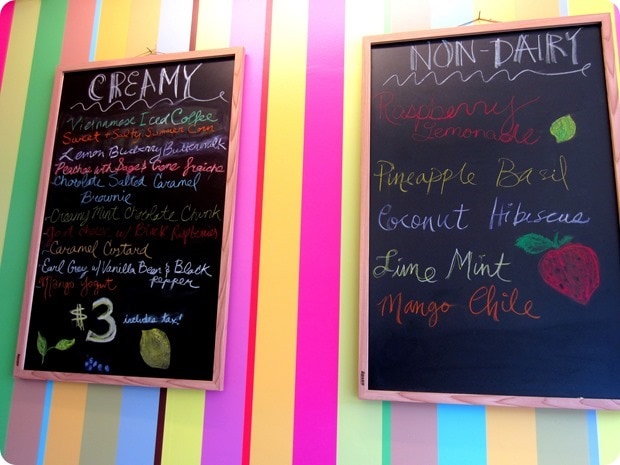 CREAMY
Vietnamese Iced Coffee
Sweet + Salty Summer Corn
Lemon Blueberry Buttermilk
Peaches with Sage & Creme fraiche
-Chocolate Salted Caramel
Brownie
-Creamy Mint Chocolate Chunk
-Goat cheese w/ Black Raspberries
-Caramel Custard
-Earl Grey w/ Vanilla Bean & Black
Pepper
Mango Yogurt
$3 includes tax!
NON-DAIRY
Raspberry
Lemonade
Pineapple Basil
Coconut Hibiscus
Lime Mint
Mango Chile